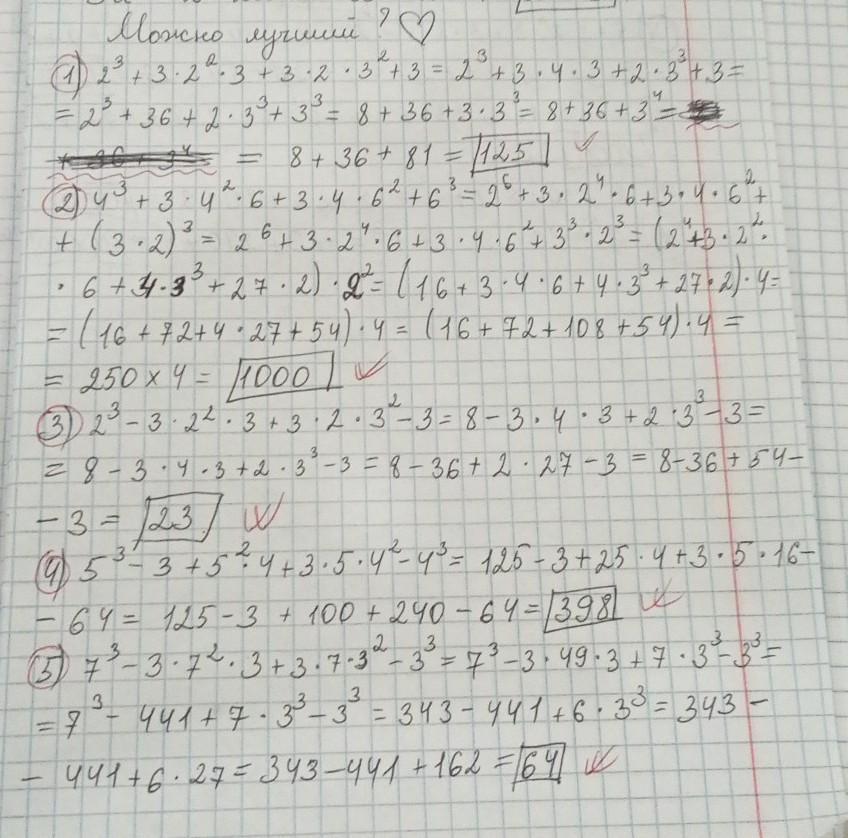 Можно лучший ? ♡
1) 2³ + 3 · 2² · 3 + 3 · 2 · 3² + 3 = 2³ + 3 · 4 · 3 + 2 · 3³ + 3 =
= 2³ + 36 + 2 · 3³ + 3³ = 8 + 36 + 3 · 3³ = 8 + 36 + 3⁴ =
= 8 + 36 + 81 = 125
2) 4³ + 3 · 4² · 6 + 3 · 4 · 6² + 6³ = 2⁶ + 3 · 2⁴ · 6 + 3 · 4 · 6² +
+ (3 · 2)³ = 2⁶ + 3 · 2⁴ · 6 + 3 · 4 · 6² + 3³ · 2³ = (2⁴ + 3 · 2² ·
· 6 + 4 · 3³ + 27 · 2) · 2² = (16 + 3 · 4 · 6 + 4 · 3³ + 27 · 2) · 4 =
= (16 + 72 + 4 · 27 + 54) · 4 = (16 + 72 + 108 + 54) · 4 =
= 250 × 4 = 1000
3) 2³ - 3 · 2² · 3 + 3 · 2 · 3² - 3 = 8 - 3 · 4 · 3 + 2 · 3³ - 3 =
= 8 - 3 · 4 · 3 + 2 · 3³ - 3 = 8 - 36 + 2 · 27 - 3 = 8 - 36 + 54 -
- 3 = 23
4) 5³ - 3 + 5² · 4 + 3 · 5 · 4² - 4³ = 125 - 3 + 25 · 4 + 3 · 5 · 16 -
- 64 = 125 - 3 + 100 + 240 - 64 = 398
5) 7³ - 3 · 7² · 3 + 3 · 7 · 3² - 3³ = 7³ - 3 · 49 · 3 + 7 · 3³ - 3³ =
= 7³ - 441 + 7 · 3³ - 3³ = 343 - 441 + 6 · 3³ = 343 -
- 441 + 6 · 27 = 343 - 441 + 162 = 64